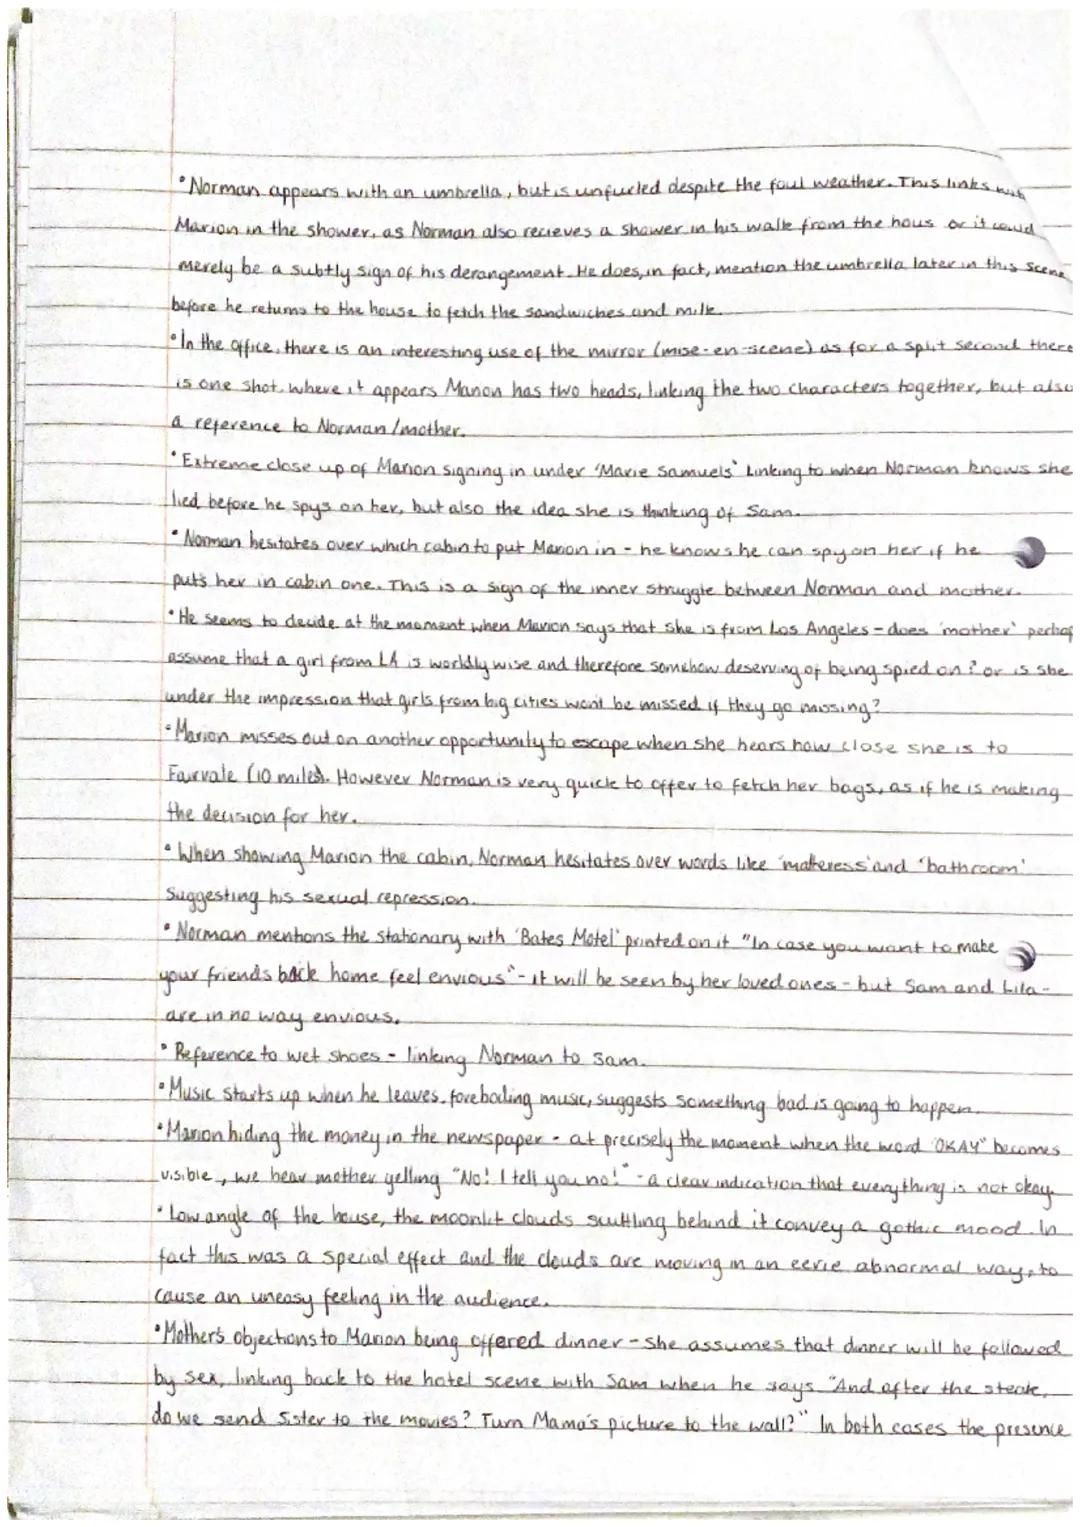 • Norman appears with an umbrella, but is unfurled despite the foul weather. This links with
Marion in the shower, as Norman also recieves a shower in his walk from the hous or it could
merely be a subtly sign of his derangement. He does, in fact, mention the umbrella later in this scene
before he returns to the house to fetch the sandwiches and milk.
• In the office, there is an interesting use of the mirror (mise-en-scene) as for a split second there
is one shot, where it appears Marion has two heads, linking the two characters together, but also
a reference to Norman/mother.
• Extreme close up of Marion signing in under 'Marie Samuels' Linking to when Norman knows she
lied before he spys on her, but also the idea she is thinking of Sam.
• Norman hesitates over which cabin to put Marion in - he knows he can spy on her if he
puts her in cabin one. This is a sign of the inner struggle between Norman and mother.
• He seems to decide at the moment when Marion says that she is from Los Angeles - does 'mother' perhap
assume that a girl from LA is worldly wise and therefore somehow deserving of being spied on? or is she
under the impression that girls from big cities wont be missed if they go missing?
• Marion misses out on another opportunity to escape when she hears how close she is to
Fairvale (10 miles). However Norman is very quick to offer to fetch her bags, as if he is making
the decision for her.
• When showing Marion the cabin, Norman hesitates over words like 'matteress' and 'bathroom'
Suggesting his sexual repression.
• Norman mentions the stationary with 'Bates Motel' printed on it "In case you want to make
your friends back home feel envious" - it will be seen by her loved ones - but Sam and Lila -
are in no way envious.
• Reference to wet shoes - linking Norman to Sam.
• Music starts up when he leaves, foreboding music, suggests something bad is going to happen.
• Marion hiding the money in the newspaper - at precisely the moment when the word "OKAY" becomes
visible, we hear mother yelling "No! I tell you no!" - a clear indication that everything is not okay.
• Low angle of the house, the moonlit clouds scuttling behind it convey a gothic mood. In
fact this was a special effect and the clouds are moving in an eerie abnormal way, to
cause an uneasy feeling in the audience.
• Mother's objections to Marion being offered dinner - She assumes that dinner will be followed
by sex, linking back to the hotel scene with Sam when he says "And after the steak,
do we send Sister to the movies? Turn Mama's picture to the wall?" In both cases the presence